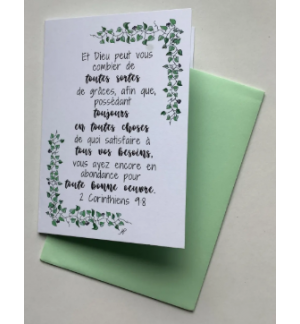 Et Dieu peut vous
combler de
toutes sortes
de grâces, afin que,
possédant
toujours
en toutes choses
de quoi satisfaire à
tous vos besoins,
vous ayez encore en
abondance pour
toute bonne oeuvre.
2 Corinthiens 9:8